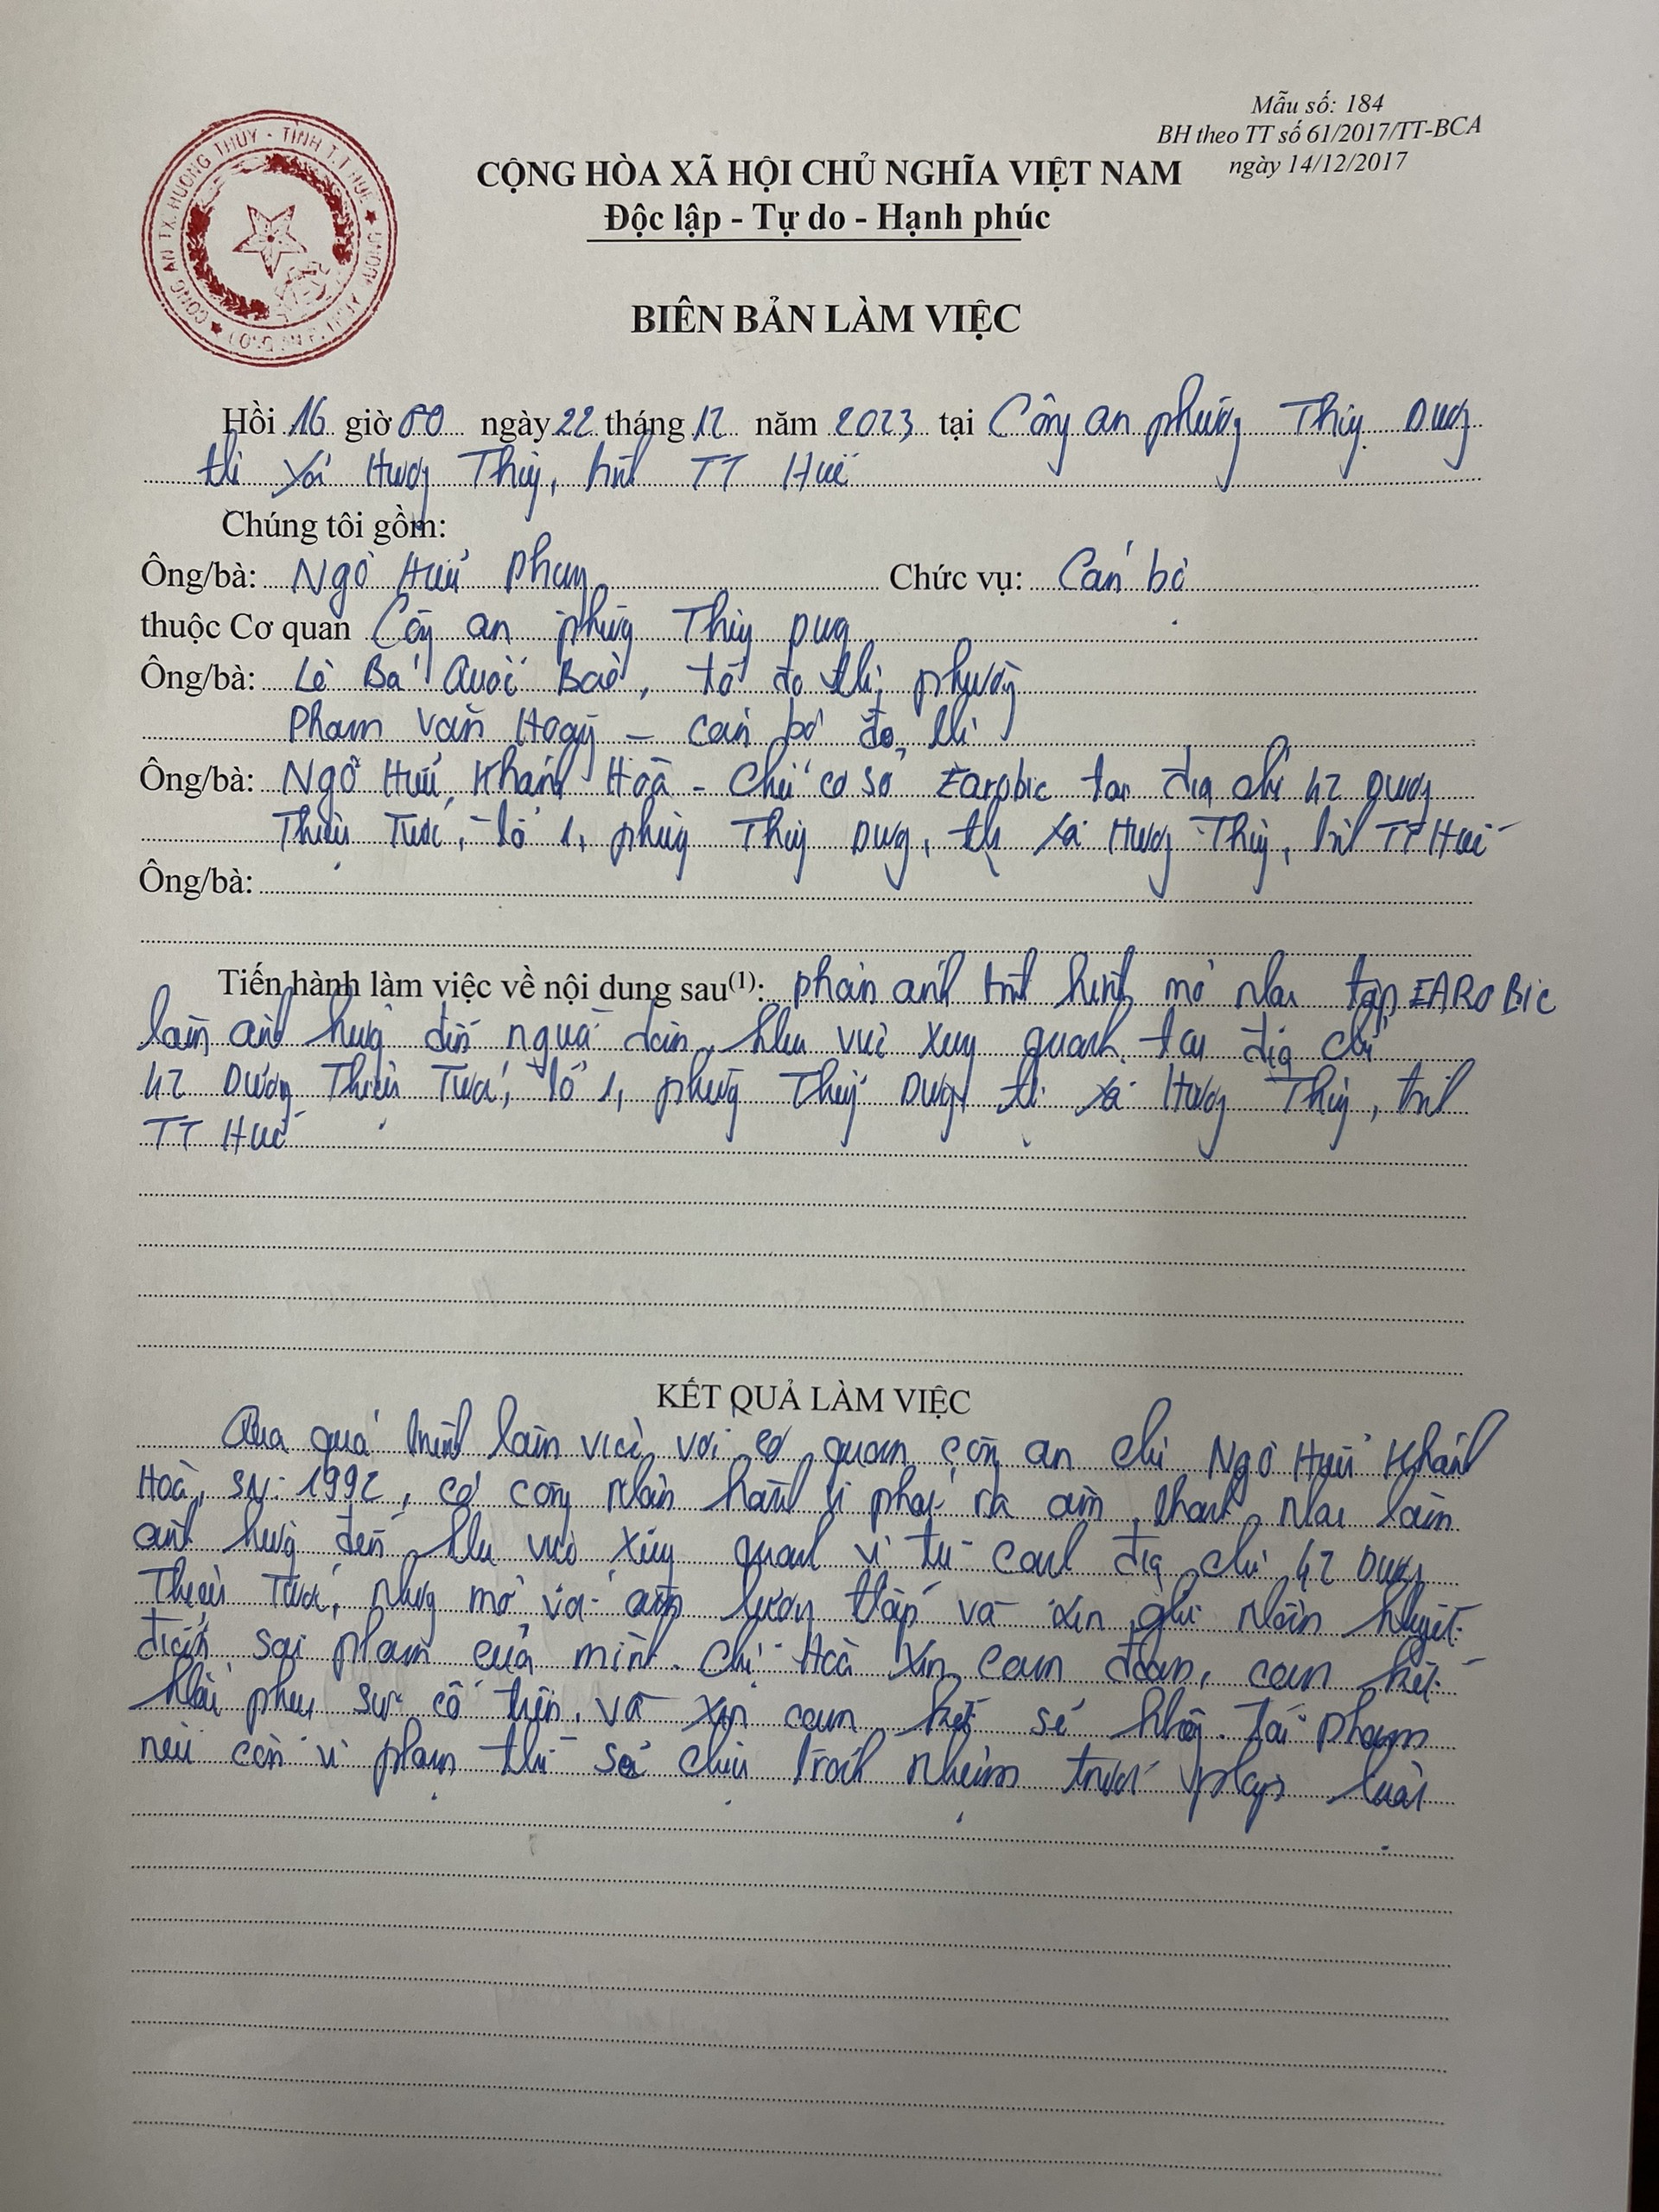 Mẫu số: 184
BH theo TT số 61/2017/TT-BCA
ngày 14/12/2017
CÔNG AN TX. HƯƠNG THỦY - TỈNH T.T HUẾ
CỘNG HÒA XÃ HỘI CHỦ NGHĨA VIỆT NAM
Độc lập - Tự do - Hạnh phúc
BIÊN BẢN LÀM VIỆC
Hồi 16 giờ 00 ngày 22 tháng 12 năm 2023 tại Công an phường Thủy Dương
thị xã Hương Thủy, tỉnh TT Huế
Chúng tôi gồm:
Ông/bà: Ngô Hữu Chức vụ: Cán bộ
thuộc Cơ quan Công an phường Thủy Dương
Ông/bà: Lê Bá Quốc Bảo, tổ đô thị phường
Phạm Văn Hoàng - cán bộ đô thị
Ông/bà: Ngô Hữu Khánh Hoà - Chủ cơ sở Earobic tại địa chỉ 42 Dương
Thiệu Tước, tổ 1, phường Thủy Dương, thị xã Hương Thủy, tỉnh TT Huế
Ông/bà:
Tiến hành làm việc về nội dung sau(1): phản ánh tình hình mở nhạc tập EAROBIC
làm ảnh hưởng đến người dân khu vực xung quanh tại địa chỉ
42 Dương Thiệu Tước, tổ 1, phường Thủy Dương, thị xã Hương Thủy, tỉnh
TT Huế
KẾT QUẢ LÀM VIỆC
Qua quá trình làm việc với cơ quan công an chị Ngô Hữu Khánh
Hoà, SN: 1992, có công nhận hành vi phát ra âm thanh nhạc làm
ảnh hưởng đến khu vực xung quanh vị trí cạnh địa chỉ 42 Dương
Thiệu Tước, nhưng mở với âm lượng thấp và xin ghi nhận khuyết
điểm sai phạm của mình. Chị Hoà xin cam đoan, cam kết
khắc phục sự cố trên, và xin cam kết sẽ không tái phạm
nếu còn vi phạm thì sẽ chịu trách nhiệm trước pháp luật